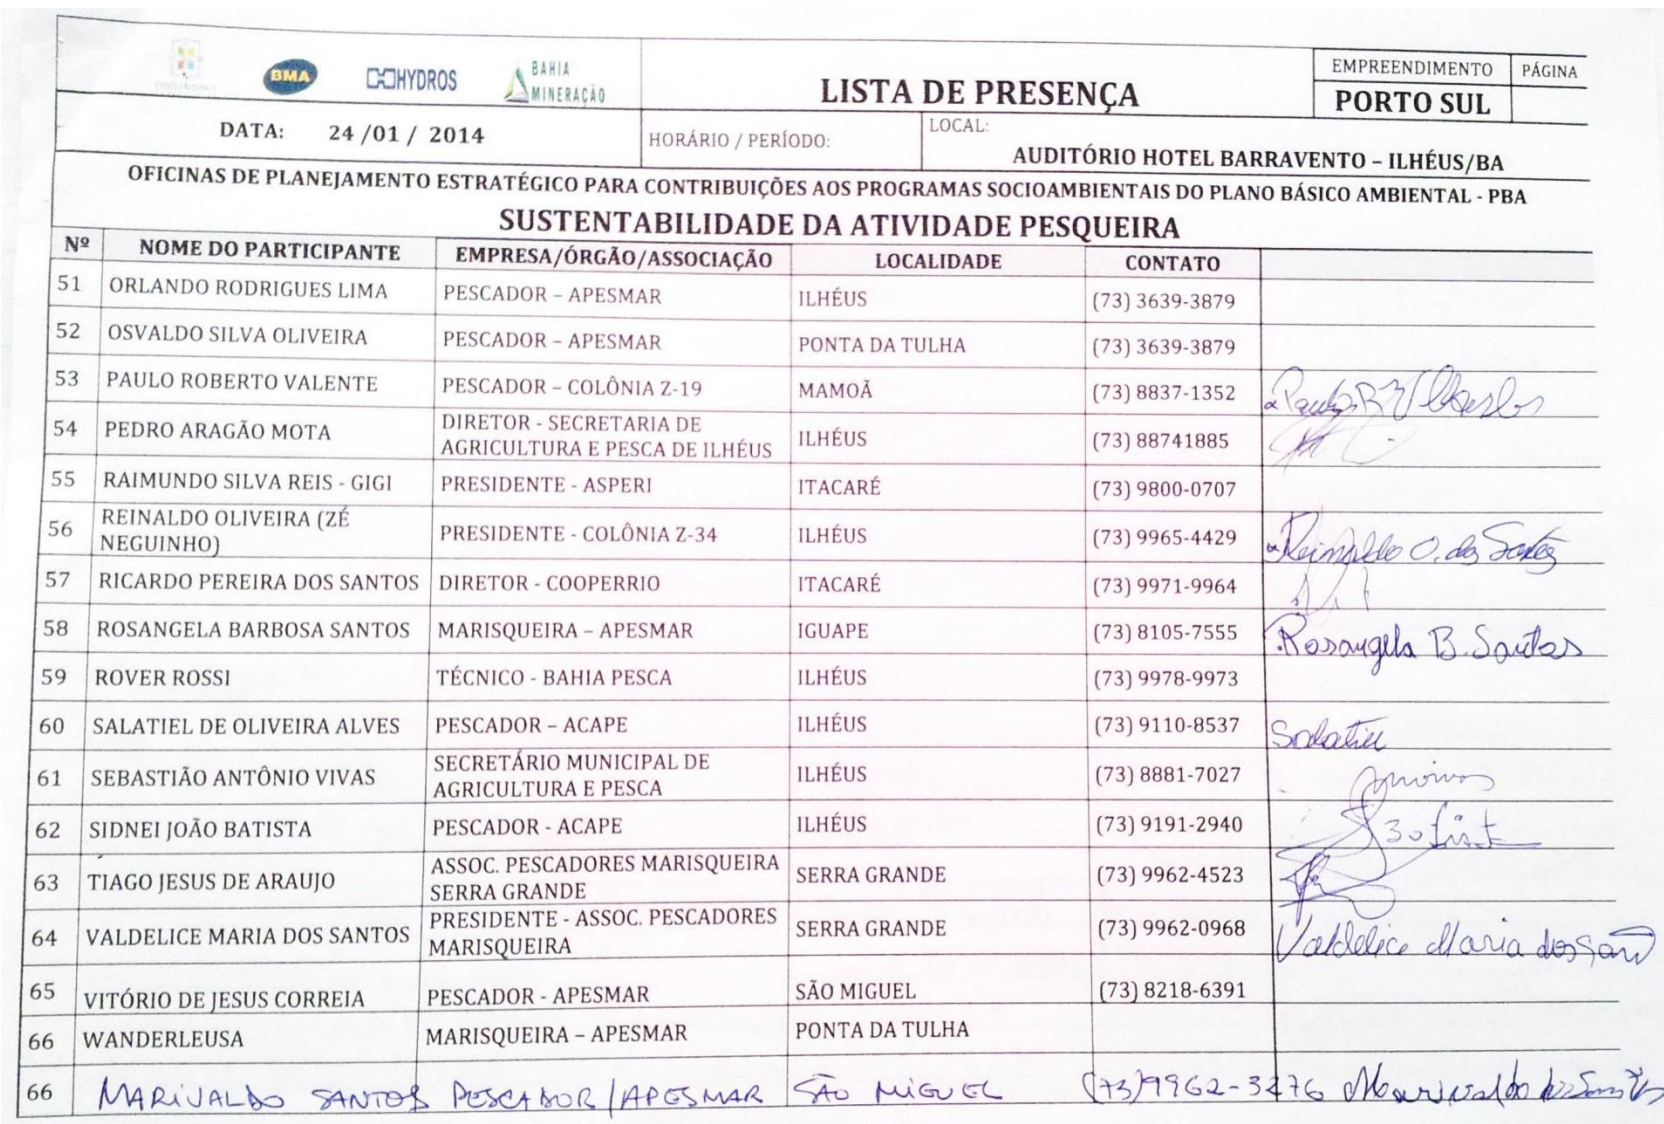 BMA HYDROS BAHIA MINERAÇÃO
LISTA DE PRESENÇA
EMPREENDIMENTO PÁGINA
PORTO SUL
DATA: 24 /01 / 2014 HORÁRIO / PERÍODO: LOCAL:
AUDITÓRIO HOTEL BARRAVENTO – ILHÉUS/BA
OFICINAS DE PLANEJAMENTO ESTRATÉGICO PARA CONTRIBUIÇÕES AOS PROGRAMAS SOCIOAMBIENTAIS DO PLANO BÁSICO AMBIENTAL - PBA
SUSTENTABILIDADE DA ATIVIDADE PESQUEIRA
Nº NOME DO PARTICIPANTE EMPRESA/ÓRGÃO/ASSOCIAÇÃO LOCALIDADE CONTATO
51 ORLANDO RODRIGUES LIMA PESCADOR – APESMAR ILHÉUS (73) 3639-3879
52 OSVALDO SILVA OLIVEIRA PESCADOR – APESMAR PONTA DA TULHA (73) 3639-3879
53 PAULO ROBERTO VALENTE PESCADOR – COLÔNIA Z-19 MAMOÃ (73) 8837-1352
54 PEDRO ARAGÃO MOTA DIRETOR - SECRETARIA DE
AGRICULTURA E PESCA DE ILHÉUS ILHÉUS (73) 88741885
55 RAIMUNDO SILVA REIS - GIGI PRESIDENTE - ASPERI ITACARÉ (73) 9800-0707
56 REINALDO OLIVEIRA (ZÉ
NEGUINHO) PRESIDENTE - COLÔNIA Z-34 ILHÉUS (73) 9965-4429 Reinaldo O. dos Santos
57 RICARDO PEREIRA DOS SANTOS DIRETOR - COOPERRIO ITACARÉ (73) 9971-9964
58 ROSANGELA BARBOSA SANTOS MARISQUEIRA – APESMAR IGUAPE (73) 8105-7555 Rosangela B. Santos
59 ROVER ROSSI TÉCNICO - BAHIA PESCA ILHÉUS (73) 9978-9973
60 SALATIEL DE OLIVEIRA ALVES PESCADOR – ACAPE ILHÉUS (73) 9110-8537 Salatiel
61 SEBASTIÃO ANTÔNIO VIVAS SECRETÁRIO MUNICIPAL DE
AGRICULTURA E PESCA ILHÉUS (73) 8881-7027
62 SIDNEI JOÃO BATISTA PESCADOR - ACAPE ILHÉUS (73) 9191-2940
63 TIAGO JESUS DE ARAUJO ASSOC. PESCADORES MARISQUEIRA
SERRA GRANDE SERRA GRANDE (73) 9962-4523
64 VALDELICE MARIA DOS SANTOS PRESIDENTE - ASSOC. PESCADORES
MARISQUEIRA SERRA GRANDE (73) 9962-0968 Valdelice Maria dos
65 VITÓRIO DE JESUS CORREIA PESCADOR - APESMAR SÃO MIGUEL (73) 8218-6391
66 WANDERLEUSA MARISQUEIRA – APESMAR PONTA DA TULHA
66 MARIVALDO SANTOS PESCADOR/APESMAR SÃO MIGUEL (73)9962-3276 Marivaldo dos Santos